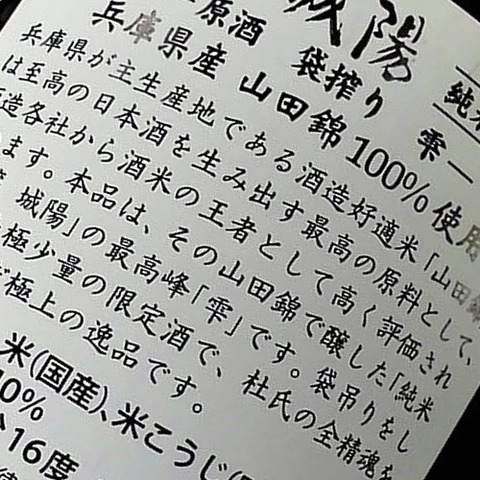 城陽
原酒 袋搾り 雫 純米
兵庫県産 山田錦100%使用
兵庫県が主生産地である酒造好適米「山田錦
は至高の日本酒を生み出す最高の原料として、
酒造各社から酒米の王者として高く評価され
ます。本品は、その山田錦で醸した「純米
城陽」の最高峰「雫」です。袋吊りをし
極少量の限定酒で、杜氏の全精魂を
極上の逸品です。
米(国産)、米こうじ(
0%
16度